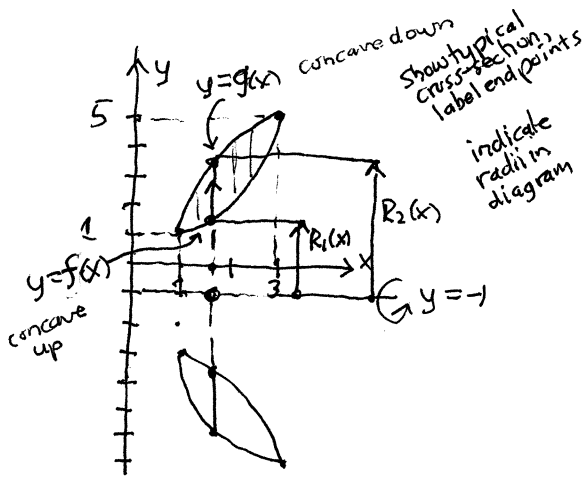 y
y=g(x)
concave down
show typical
cross-section,
label endpoints
indicate
radii in
diagram
5
1
R₁(x)
R₂(x)
x
y=f(x)
concave
up
1
3
y=-1